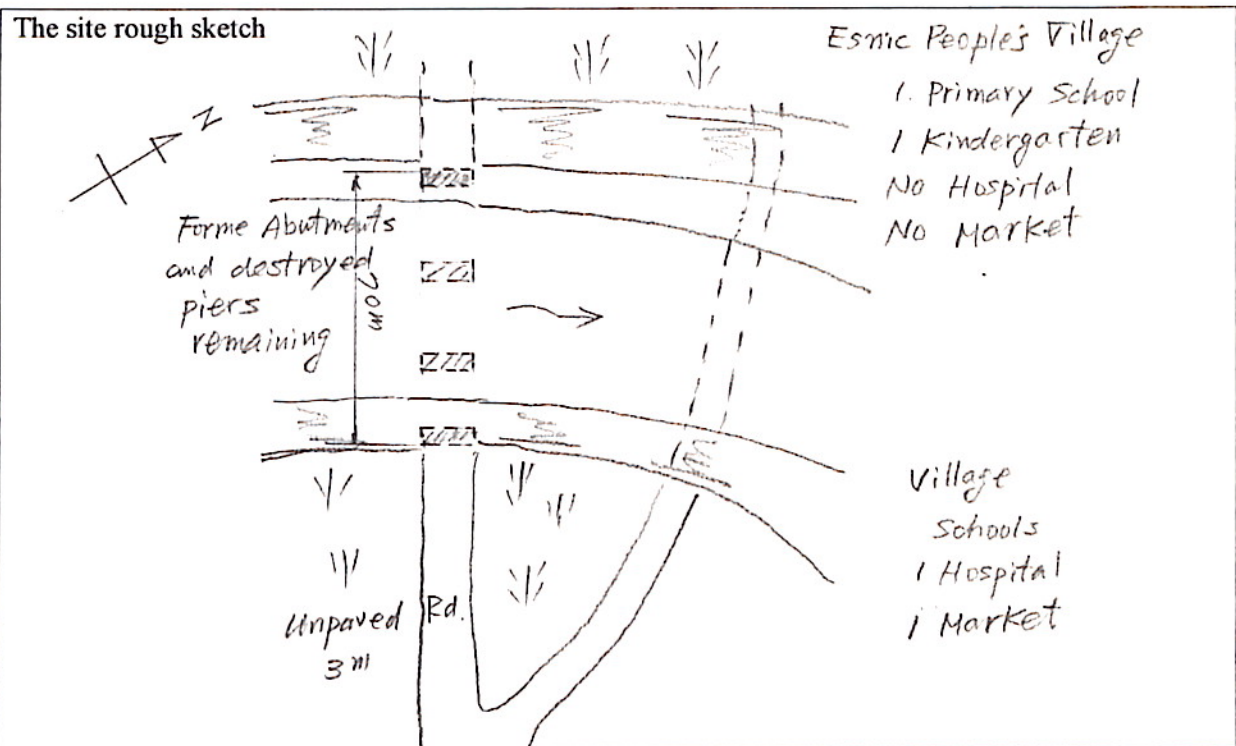 The site rough sketch
Esnic People's Village
1. Primary School
1 Kindergarten
No Hospital
No Market
N
Forme Abutments
and destroyed
piers
remaining
20m
Village
Schools
1 Hospital
1 Market
Unpaved Rd.
3m